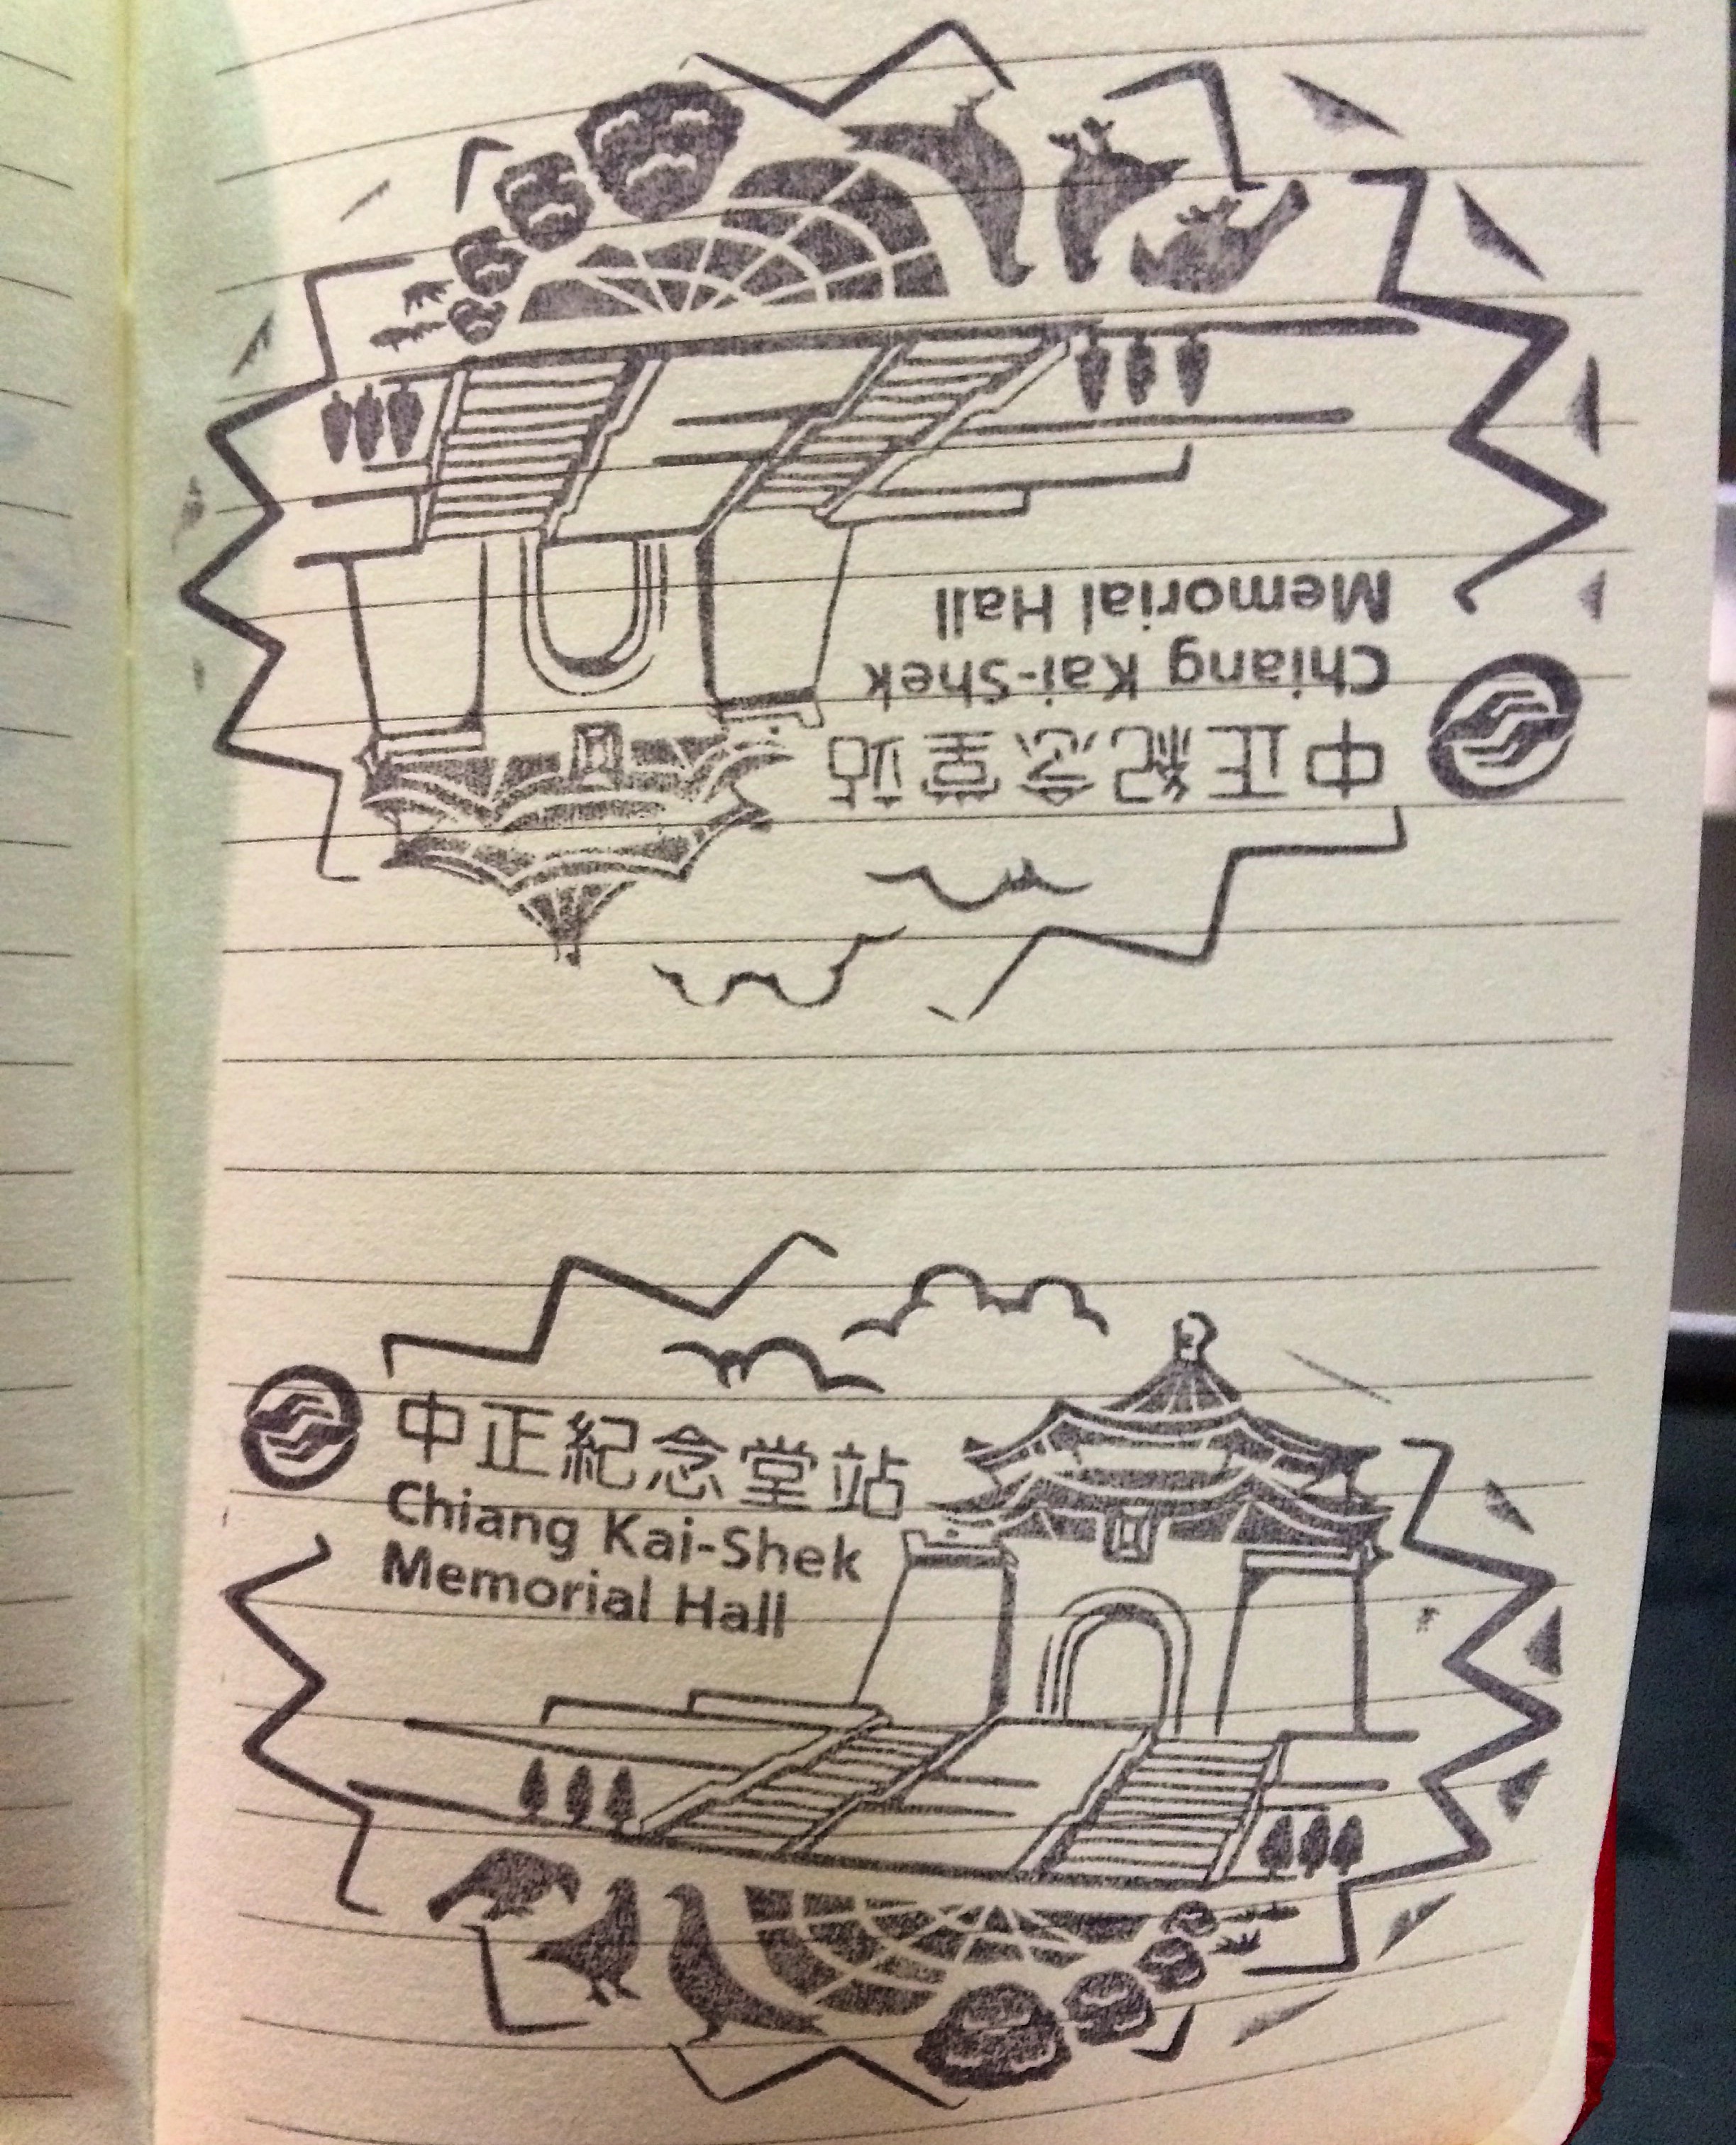 中正紀念堂站
Chiang Kai-Shek
Memorial Hall
中正紀念堂站
Chiang Kai-Shek
Memorial Hall